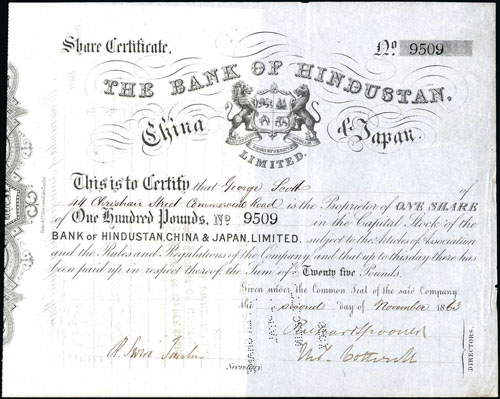 Share Certificate.
No 9509
THE BANK OF HINDUSTAN.
China & Japan.
LIMITED.
This is to Certify that George Scott of
14 Christian Street Commercial Road is the Proprietor of ONE SHARE
of One Hundred Pounds, No 9509 in the Capital Stock of the
BANK OF HINDUSTAN, CHINA & JAPAN, LIMITED. subject to the Articles of Association
and the Rules and Regulations of the Company, and that up to this day there has
been paid up in respect thereof the Sum of Twenty five Pounds.
Given under the Common Seal of the said Company
the second day of November 1863
Richard Spooner
Cotterell
DIRECTORS.
Secretary